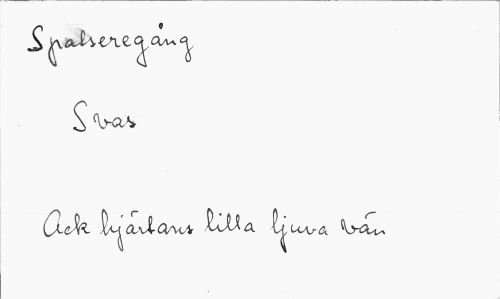 Spalseregång
Svas
Ack hjärtans lilla ljuva vän